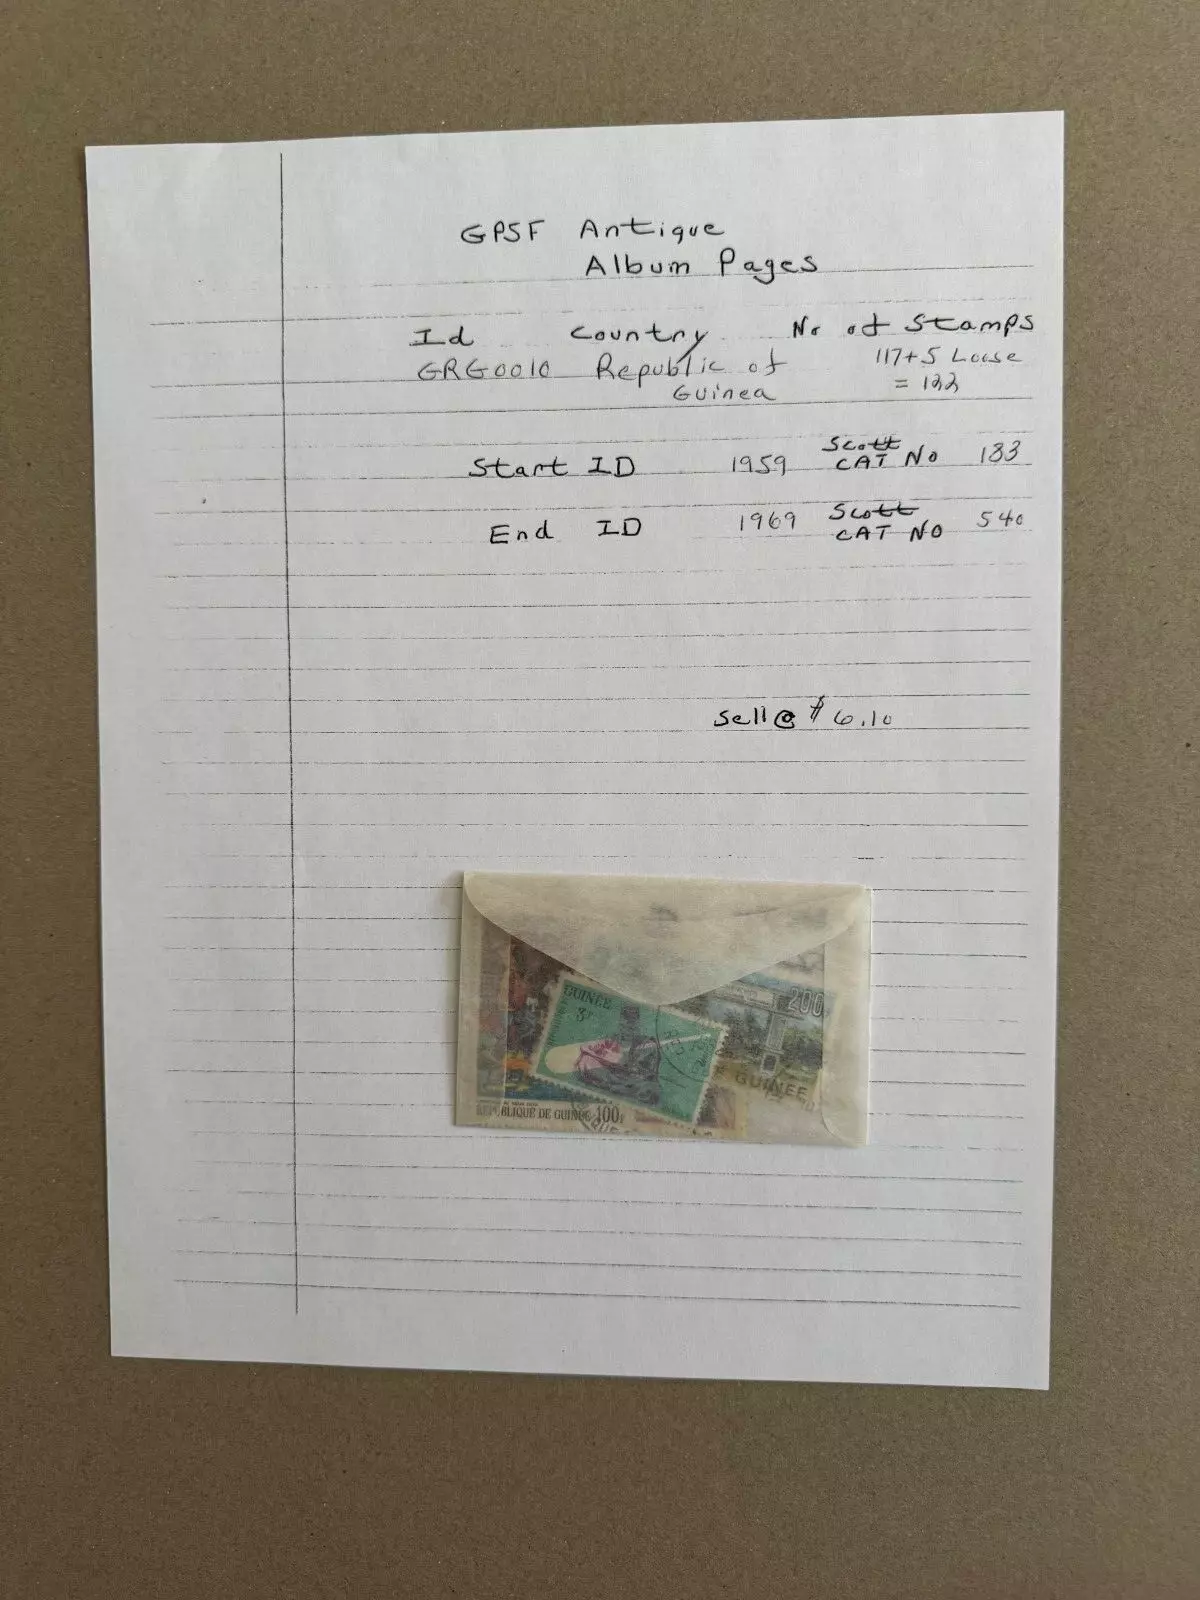 GPSF Antique
Album Pages
Id Country No of Stamps
GRG0010 Republic of 117+5 Loose
Guinea = 122
Start ID 1959 Scott CAT No 183
End ID 1969 Scott CAT NO 540
Sell @ $6.10
GUINÉE
3F
200F
GUINEE
REPUBLIQUE DE GUINEE 100F